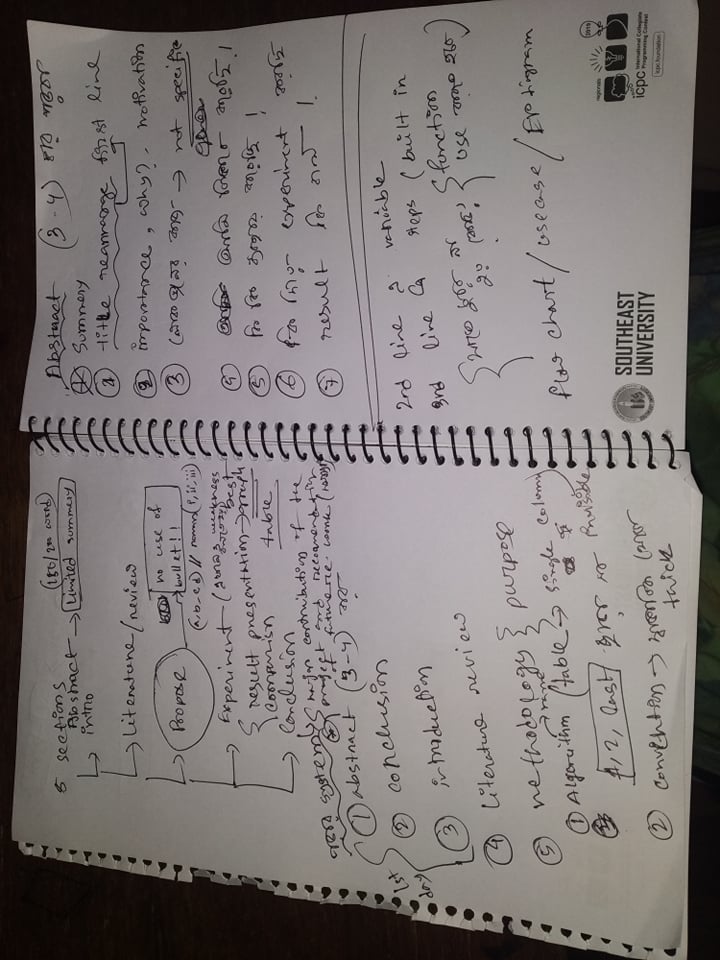 (150/200 word)
5 sections
Abstract → Limited summery
intro
Literature/review
Propose
no use of
bullet!!
(a, b, c, d) // roman (i, ii, iii)
Experiment ( weakness
result presentation → best
graph
comparism
table
Conclusion
major contribution of the
project and recomendation
of future work
পড়ার system
1st
day
① abstract (3-4) বার
② conclusion
③ introduction
④ Literature review
⑤ methodology } purpose
name
① Algorithm (table → single column)
1, 2, last invisible
② convention →
thick
Abstract (3-4) বার পড়বো
① Summery
① title rearrange first line
② importance, why?, motivation
③ → not specific
④ আমি কিভাবে করেছি!
⑤ কি কি ব্যবহার করেছি!
⑥ কি দিয়ে experiment করেছি
⑦ result কি !
2nd line এ variable
3rd line এ steps (built in
function
use করতে হবে)
যাতে না
হয়
flow chart / usecase / ER diagram
SOUTHEAST
UNIVERSITY
2019
regionals
icpc International Collegiate
Programming Contest
icpc.foundation